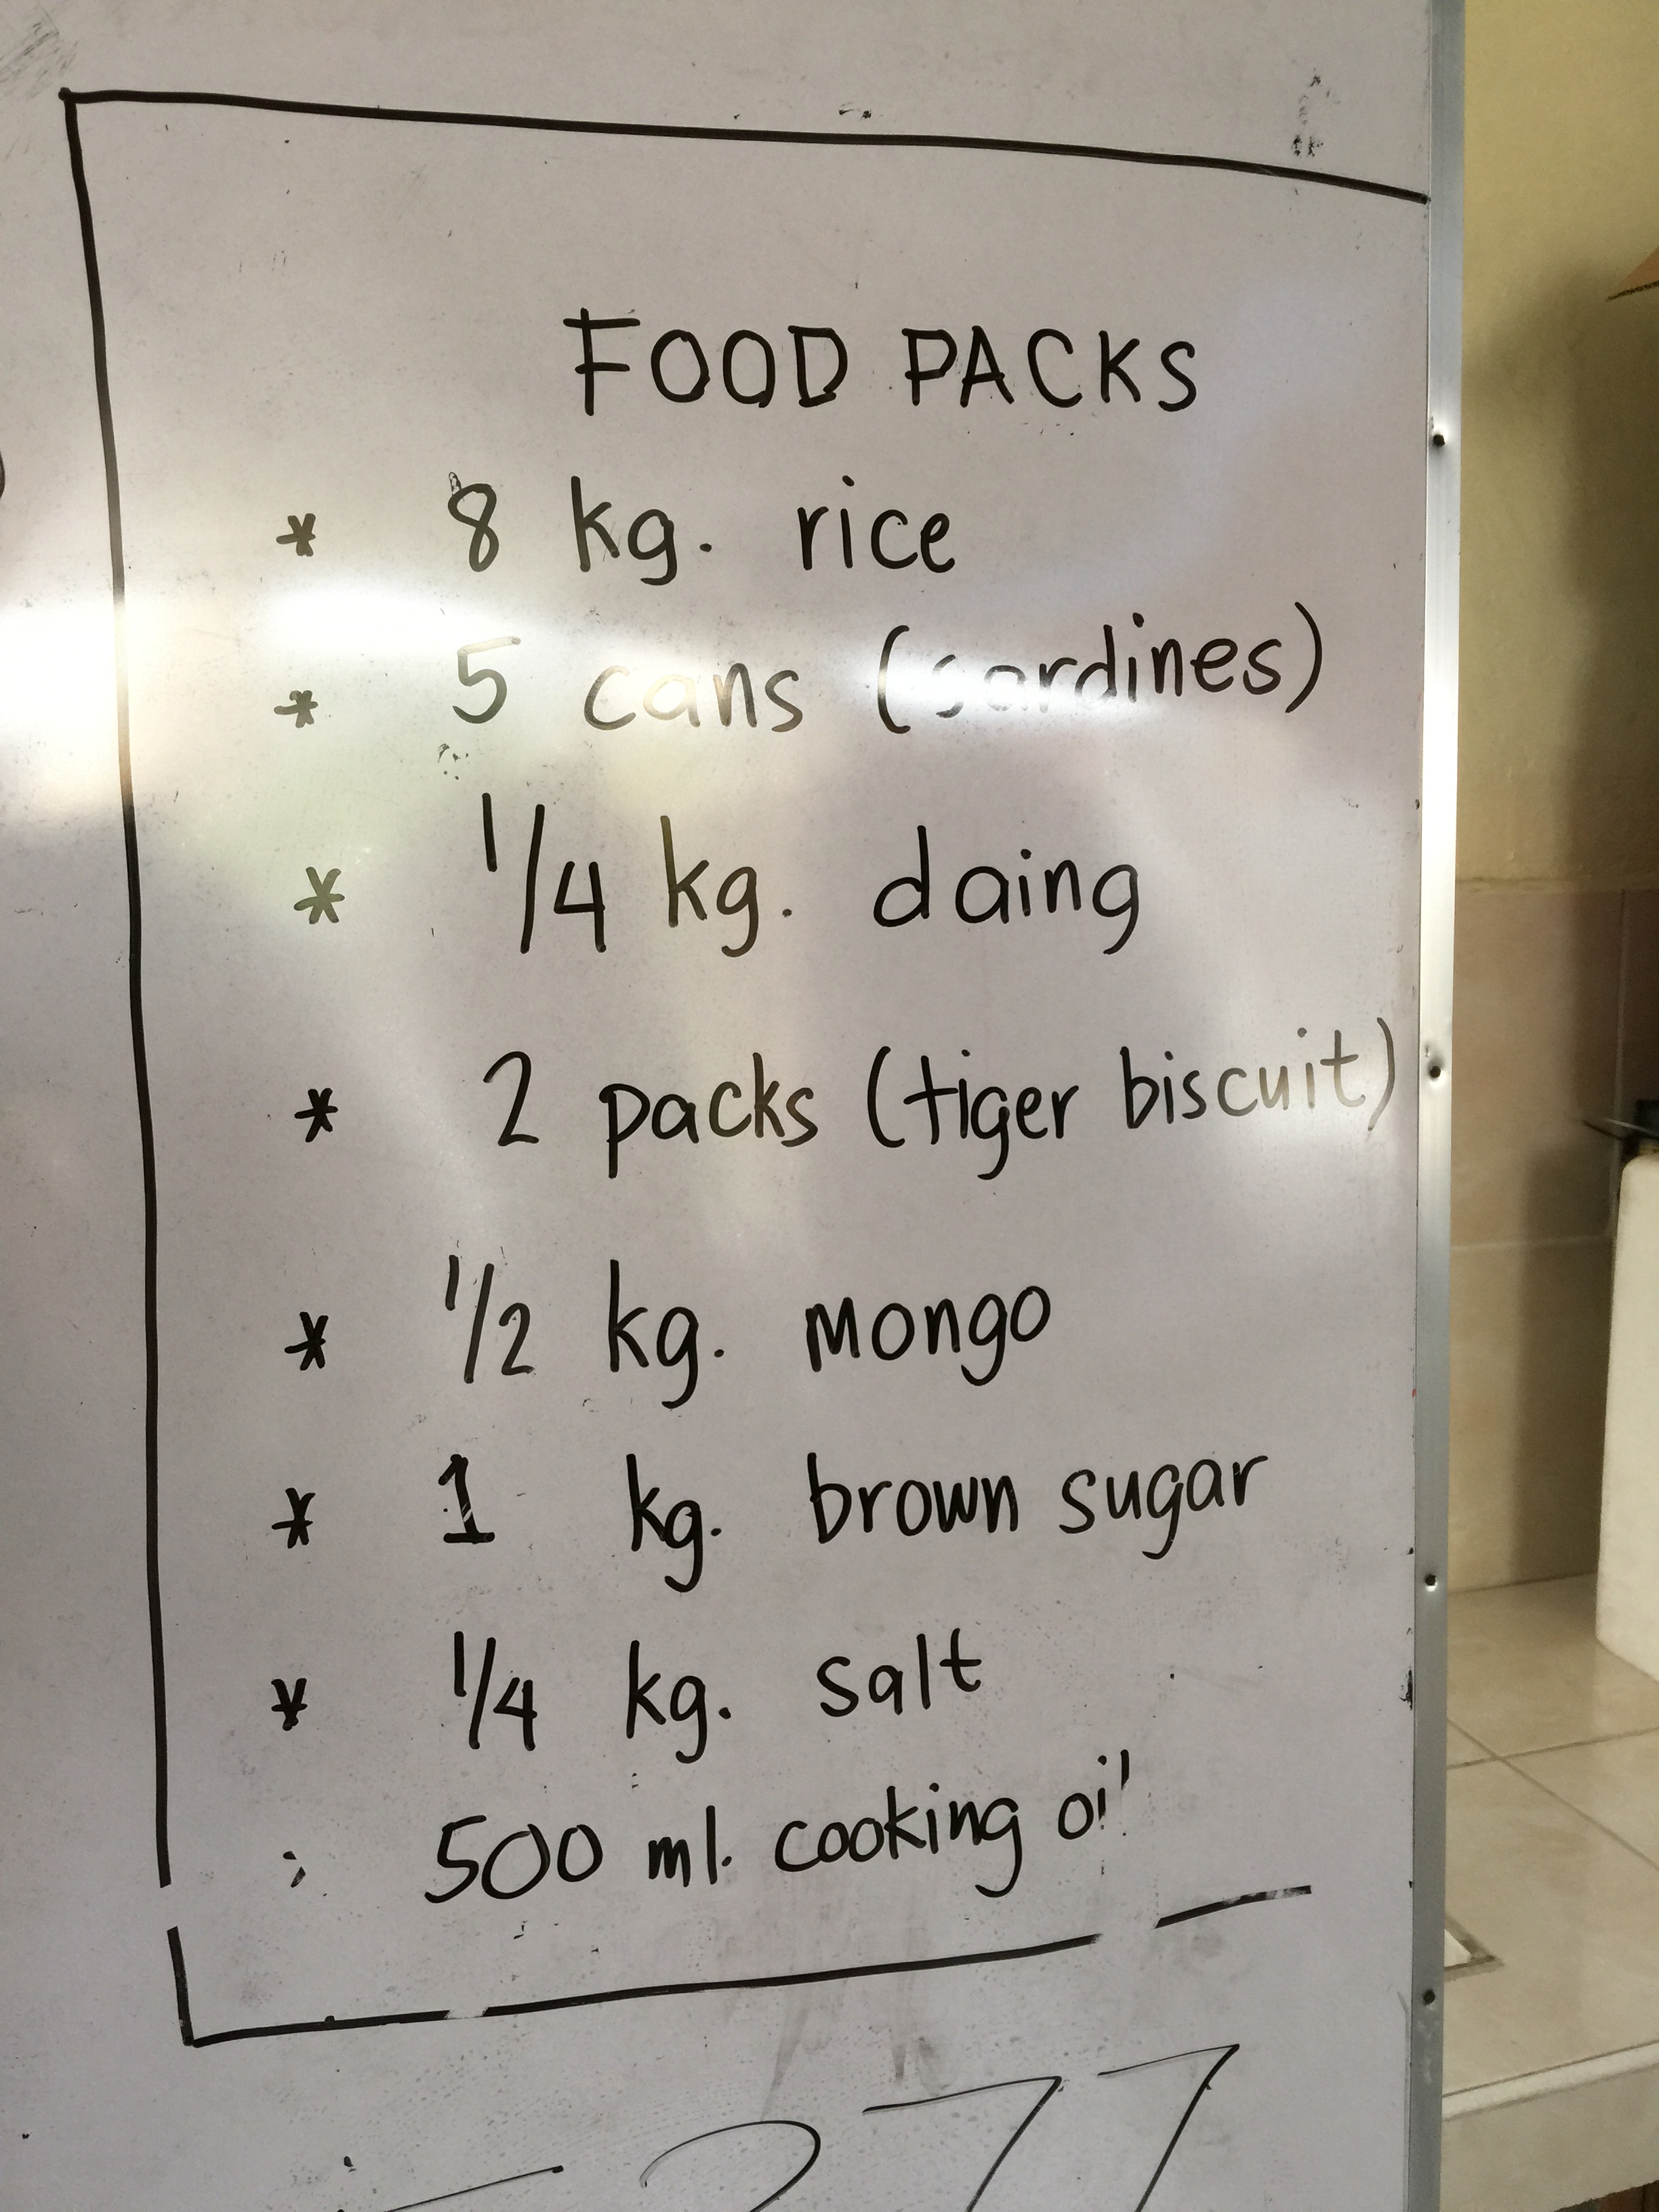 FOOD PACKS
* 8 kg. rice
* 5 cans (sardines)
* 1/4 kg. daing
* 2 packs (tiger biscuit)
* 1/2 kg. mongo
* 1 kg. brown sugar
* 1/4 kg. salt
500 ml. cooking oil